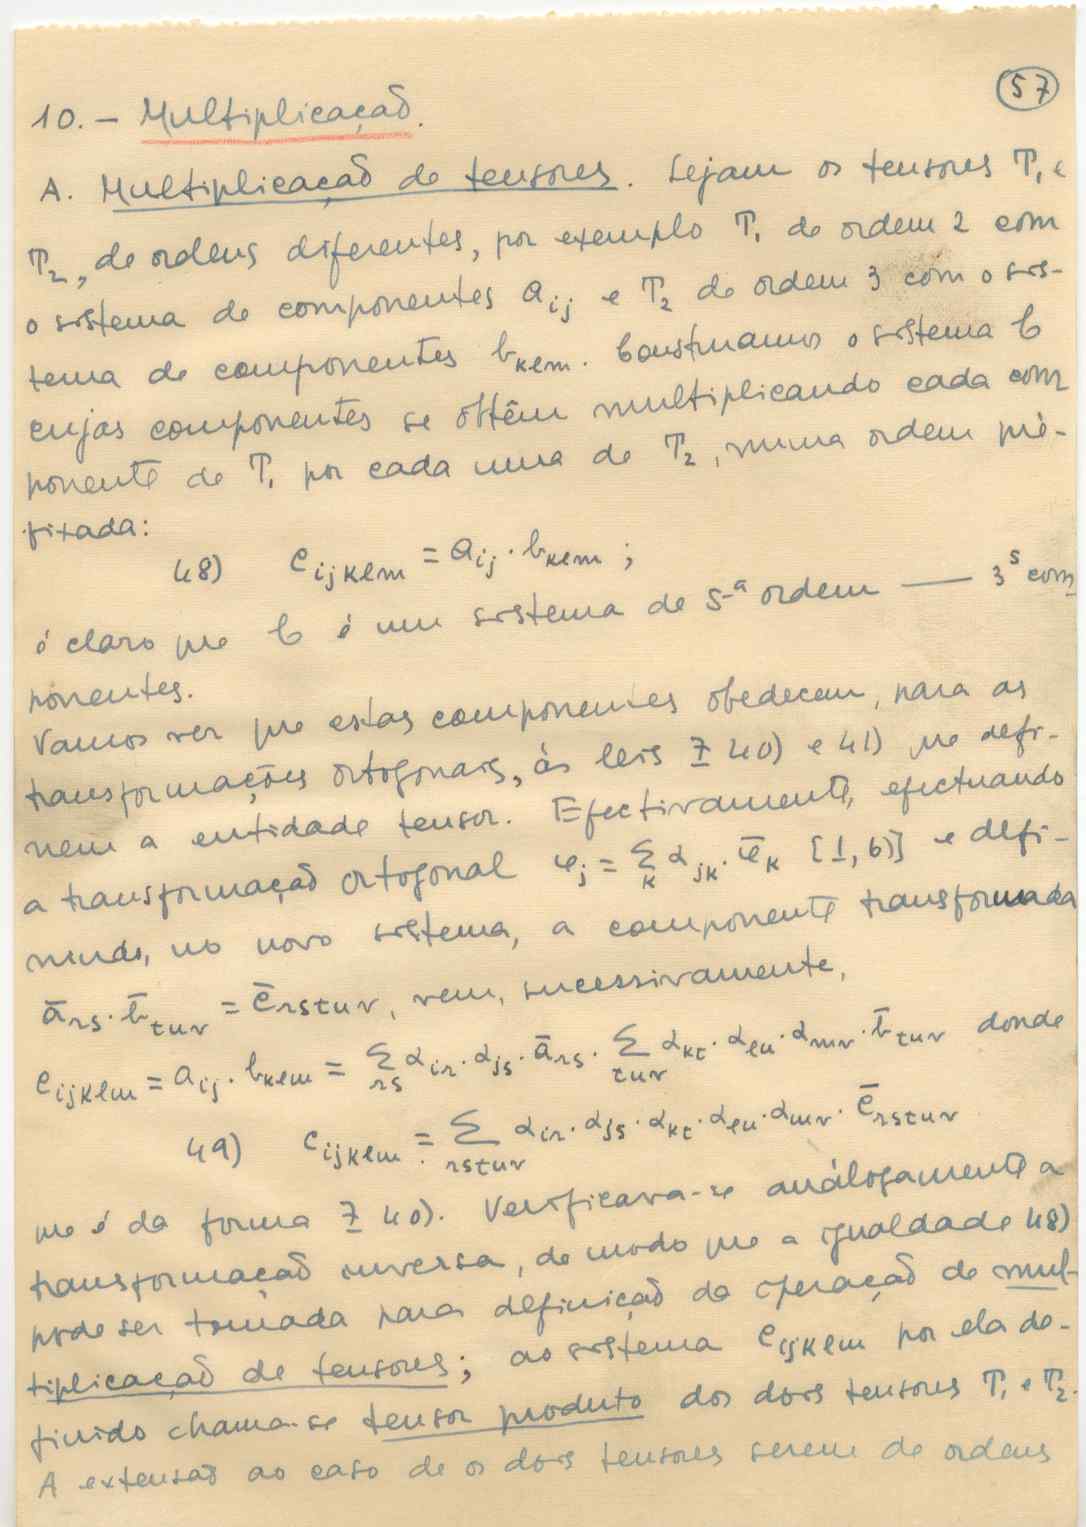 57
10. — Multiplicação.
A. Multiplicação de tensores. Sejam os tensores T₁ e
T₂, de ordens diferentes, por exemplo T₁ de ordem 2 com
o sistema de componentes aᵢⱼ e T₂ de ordem 3 com o sis-
tema de componentes bₖₗₘ. Construamos o sistema C
cujas componentes se obtêm multiplicando cada com
ponente de T₁ por cada uma de T₂, numa ordem pré-
fixada:
48) c_{ijklm} = a_{ij} · b_{klm} ;
é claro que C é um sistema de 5-ª ordem — 3⁵ com
ponentes.
Vamos ver que estas componentes obedecem, para as
transformações ortogonais, às leis 7 40) e 41) que defi-
nem a entidade tensor. Efectivamente, efectuando
a transformação ortogonal φ_j = Σ_k α_{jk} · φ̄_k [1, 6)] e defi-
nindo, no novo sistema, a componente transformada
ā_{rs} · b̄_{tuv} = c̄_{rstuv}, vem, sucessivamente,
c_{ijklm} = a_{ij} · b_{klm} = Σ_{rs} α_{ir} · α_{js} · ā_{rs} · Σ_{tuv} α_{kt} · α_{lu} · α_{mv} · b̄_{tuv} donde
49) c_{ijklm} = Σ_{rstuv} α_{ir} · α_{js} · α_{kt} · α_{lu} · α_{mv} · c̄_{rstuv}
que é da forma 7 40). Verificava-se análogamente a
transformação inversa, de modo que a igualdade 48)
pode ser tomada para definição da operação de mul-
tiplicação de tensores; ao sistema c_{ijklm} por ela de-
finido chama-se tensor produto dos dois tensores T₁ e T₂.
A extensão ao caso de os dois tensores serem de ordens